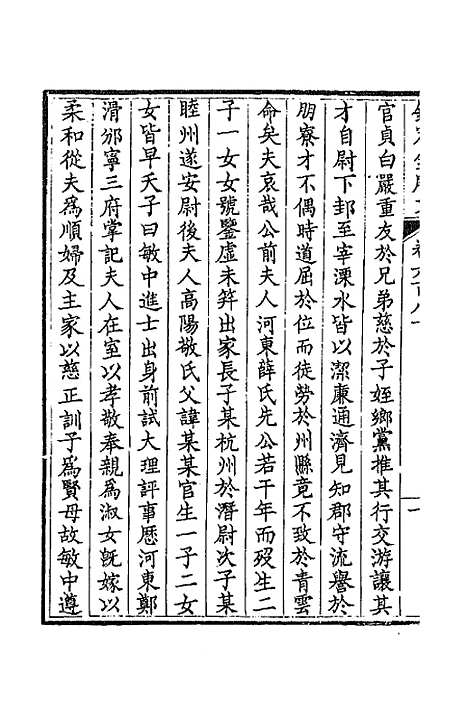 官貞白嚴重友於兄弟慈於子姪鄉黨推其行交游讓其
才自尉下邽至宰溧水皆以潔廉通濟見知郡守流譽於
朋寮才不偶時道屈於位而徒勞於州縣竟不致於青雲
命矣夫哀哉公前夫人河東薛氏先公若干年而歿生二
子一女女號鑒虛未笄出家長子某杭州於潛尉次子某
睦州遂安尉後夫人高陽敬氏父諱某某官生一子二女
女皆早夭子曰敏中進士出身前試大理評事歷河東鄭
滑邠寧三府掌記夫人在室以孝敬奉親為淑女旣嫁以
柔和從夫為順婦及主家以慈正訓子為賢母故敏中遵